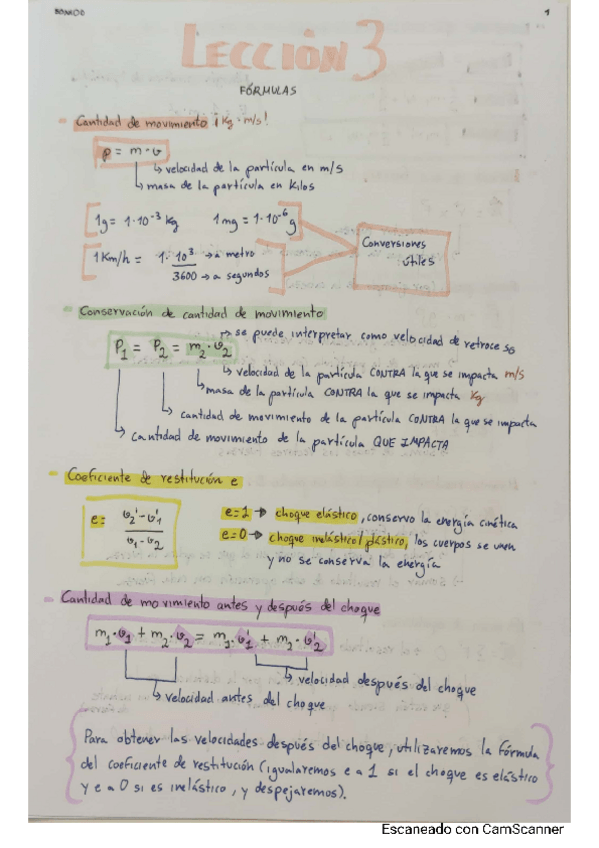 1
LECCIÓN 3
FÓRMULAS
- Cantidad de movimiento ¡Kg · m/s!
p = m · v
↳ velocidad de la partícula en m/s
↳ masa de la partícula en Kilos
1g = 1·10⁻³ Kg 1 mg = 1·10⁻⁶ g
1 Km/h = 1·10³ → a metro
3600 → a segundos
Conversiones
útiles
- Conservación de cantidad de movimiento
→ se puede interpretar como velocidad de retroceso
P₁ = P₂ = m₂ · v₂
↳ velocidad de la partícula CONTRA la que se impacta m/s
↳ masa de la partícula CONTRA la que se impacta Kg
↳ cantidad de movimiento de la partícula CONTRA la que se impacta
↳ cantidad de movimiento de la partícula QUE IMPACTA
- Coeficiente de restitución e
e = v₂' - v₁' / v₁ - v₂
e = 1 → choque elástico, conservo la energía cinética
e = 0 → choque inelástico/plástico, los cuerpos se unen
y no se conserva la energía
- Cantidad de movimiento antes y después del choque
m₁ · v₁ + m₂ · v₂ = m₁ · v₁' + m₂ · v₂'
↳ velocidad después del choque
↳ velocidad antes del choque
Para obtener las velocidades después del choque, utilizaremos la fórmula
del coeficiente de restitución (igualaremos e a 1 si el choque es elástico
y e a 0 si es inelástico, y despejaremos).
Escaneado con CamScanner